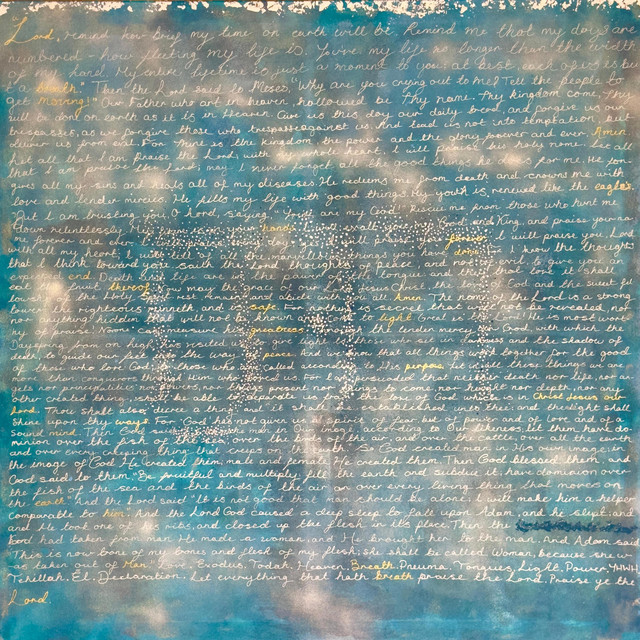 Lord, remind me how brief my time on earth will be. Remind me that my days are
numbered - how fleeting my life is. You've my life no longer than the width
of my hand. My entire lifetime is just a moment to you; at best, each of us is but
a breath." Then the Lord said to Moses, "Why are you crying out to me? Tell the people to
get moving!" Our Father who art in heaven, hallowed be Thy name. Thy kingdom come. Thy
will be done on earth as it is in heaven. Give us this day our daily bread, and forgive us our
trespasses, as we forgive those who trespass against us. And lead not into temptation, but
deliver us from evil. For Thine is the kingdom and the power and the glory, forever and ever. Amen.
Let all that I am praise the Lord; with my whole heart, I will praise his holy name. Let all
that I am praise the Lord; may I never forget all the good things he does for me. He for-
gives all my sins and heals all of my diseases. He redeems me from death and crowns me with
love and tender mercies. He fills my life with good things. My youth is renewed like the eagle's
But I am trusting you, O Lord, saying, "You are my God." Rescue me from those who hunt me
down relentlessly. hands and King and praise
me forever and ever. praise forever I will praise you Lord
with all my heart; I will tell of all the marvelous things you have done. know the thoughts
that I think toward you, said the Lord, thoughts of to give you an
expected end. life are tongue and they that love it shall
eat the fruit thereof. may the grace of our Christ the love and the sweet fel-
lowship of the Holy Spirit rest remain and abide with all. Amen The name of the Lord is a strong
tower: the righteous runneth and safe. For nothing is secret, that will not be revealed, nor
anything hidden that will not be known light Lord! He is
my praise! greatness the tender mercy of God with which the
Dayspring from on high visited to give light who sit darkness and the shadow of
death, to guide our feet the way peace. And know that all things work together for the good
of those who love God, to those who called according to His purpose. In all these things we are
more than conquerors through Him who loved us. For persuaded that neither death nor life nor
nor principalities nor powers, nor things nor things nor height nor depth, nor any
other created thing, shall be able separate us from the love of God which is in Christ Jesus our
Lord. Thou shalt also decree a thing and it shall be established unto thee: and the light shall
shine thy ways. For God has not given us a spirit of fear, but of power and of love and of a
sound mind. according to Our likeness; let them have do-
minion over the fish of over the birds of the air, and over the cattle, over all the earth
and over every creeping thing that creeps on the earth." So God created man in His own image; in
the image of God He created him; male and female He created them. Then God blessed them, and
God said to them, "Be fruitful and multiply; fill the earth and subdue it; have dominion over
the fish of the sea, over the birds of the air, and over every living thing that moves on
the earth. And the Lord said "It is not good that man should be alone; I will make him a helper
comparable to him." And the Lord God caused a deep sleep to fall upon Adam, and he slept; and
He took one of his ribs, and closed up the flesh in its place. Then the
Lord had taken from man He made a woman, and He brought her to the man. And Adam said
"This is now bone of my bones and flesh of my flesh; she shall be called Woman, because she
was taken out of Man." Love. Exodus. Todah. Heaven. Breath. Pneuma. Tongues, Light. Power. YHWH.
Tehillah. El. Declaration. Let everything that hath breath praise the Lord. Praise ye the
Lord.